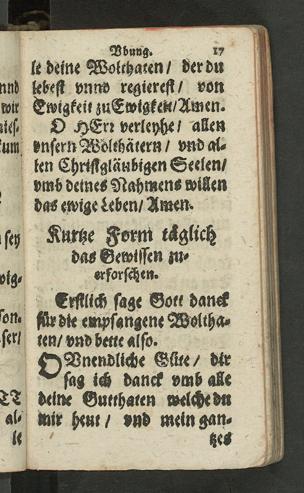 Vbung. 17
le deine Wolthaten/ der du
lebest vnnd regierest/ von
Ewigkeit zu Ewigkeit/ Amen.
O HErr verleyhe/ allen
vnsern Wolthätern/ vnd al-
len Christgläubigen Seelen/
vmb deines Nahmens willen
das ewige Leben/ Amen.
Kurtze Form täglich
das Gewissen zu-
erforschen.
Erstlich sage Gott danck
für die empfangene Woltha-
ten/ vnd bette also.
O Vnendliche Güte/ dir
sag ich danck vmb alle
deine Gutthaten welche du
mir heut/ vnd mein gan-
tzes